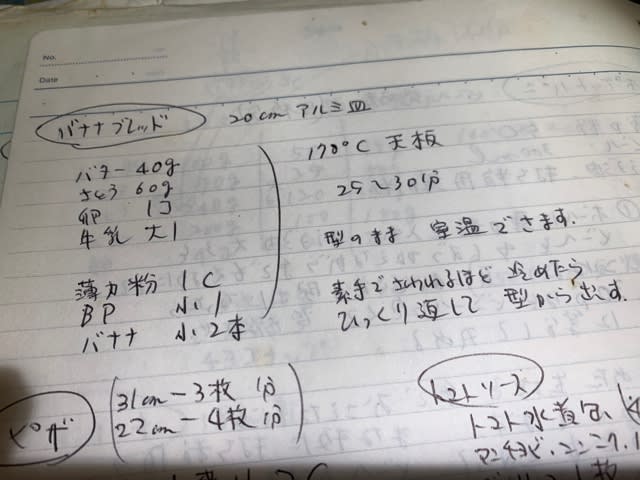 No.
Date
バナナブレッド 20cm アルミ皿
バター 40g
さとう 60g
卵 1コ
牛乳 大1
薄力粉 1C
BP 小1
バナナ 小2本
170°C 天板
25〜30分
型のまま 室温でさます.
素手でさわれるほど 冷めたら
ひっくり返して 型から出す.
ピザ
31cm-3枚分
22cm-4枚分
トマトソース
トマト水煮缶
アンチョビ・ニンニク